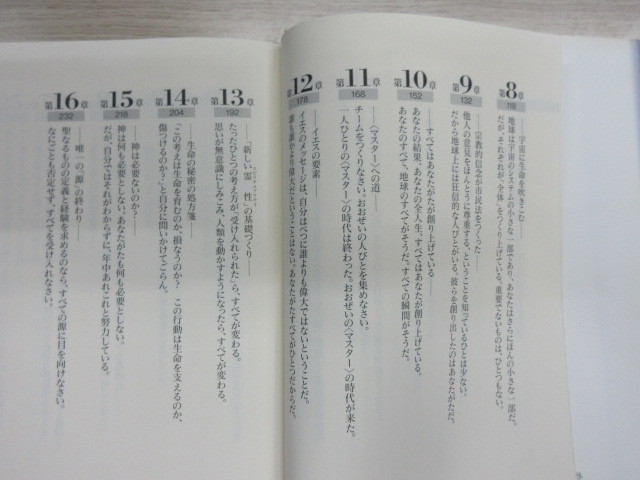 第8章
118
──宇宙に生命を吹きこむ──
地球は宇宙のシステムの小さな一部であり、あなたはさらにほんの小さな一部だ。
だが、それぞれが「全体」をつくり上げている。重要でないものは、ひとつもない。
第9章
132
──宗教的信念が市民法をつくった──
他人の意見をほんとうに尊重する、ということを知っているひとは少ない。
だから地球上には狂信的な人びとがいる。彼らを創り出したのはあなたがただ。
第10章
152
──すべてはあなたがたが創り上げている──
あなたの結果、あなたの全人生。すべてはあなたが創り上げている。
あなたのすべて、地球のすべてがそうだ。すべての瞬間がそうだ。
第11章
168
──〈マスター〉への道──
チームをつくりなさい。おおぜいの人びとを集めなさい。
一人ひとりの〈マスター〉の時代は終わった。おおぜいの〈マスター〉の時代が来た。
第12章
178
──イエスの要素──
イエスのメッセージは、自分はべつに誰よりも偉大ではないということだ。
誰も誰かより偉大だということはない。あなたがたすべてがひとつだからだ。
第13章
192
──「新しい霊性」の基礎づくり──
たったひとつの考え方が「受け入れられた」ら、すべてが変わる。
思いが無意識にしみこみ、人類を動かすようになったら、すべてが変わる。
第14章
204
──生命の秘密の処方箋──
「この考えは生命を育むのか、損なうのか？　この行動は生命を支えるのか、
傷つけるのか？」と自分に問いかけてごらん。
第15章
218
──神は必要ないのか？──
神は何も必要としない。あなたがたも何も必要としない。
だが、自分ではそれがわからずに、年中あれこれと努力している。
第16章
232
──唯一の「源」の終わり──
聖なるものの定義と経験を求めるのなら、すべての源に目を向けなさい。
なにごとも否定せず、すべてを受け入れなさい。